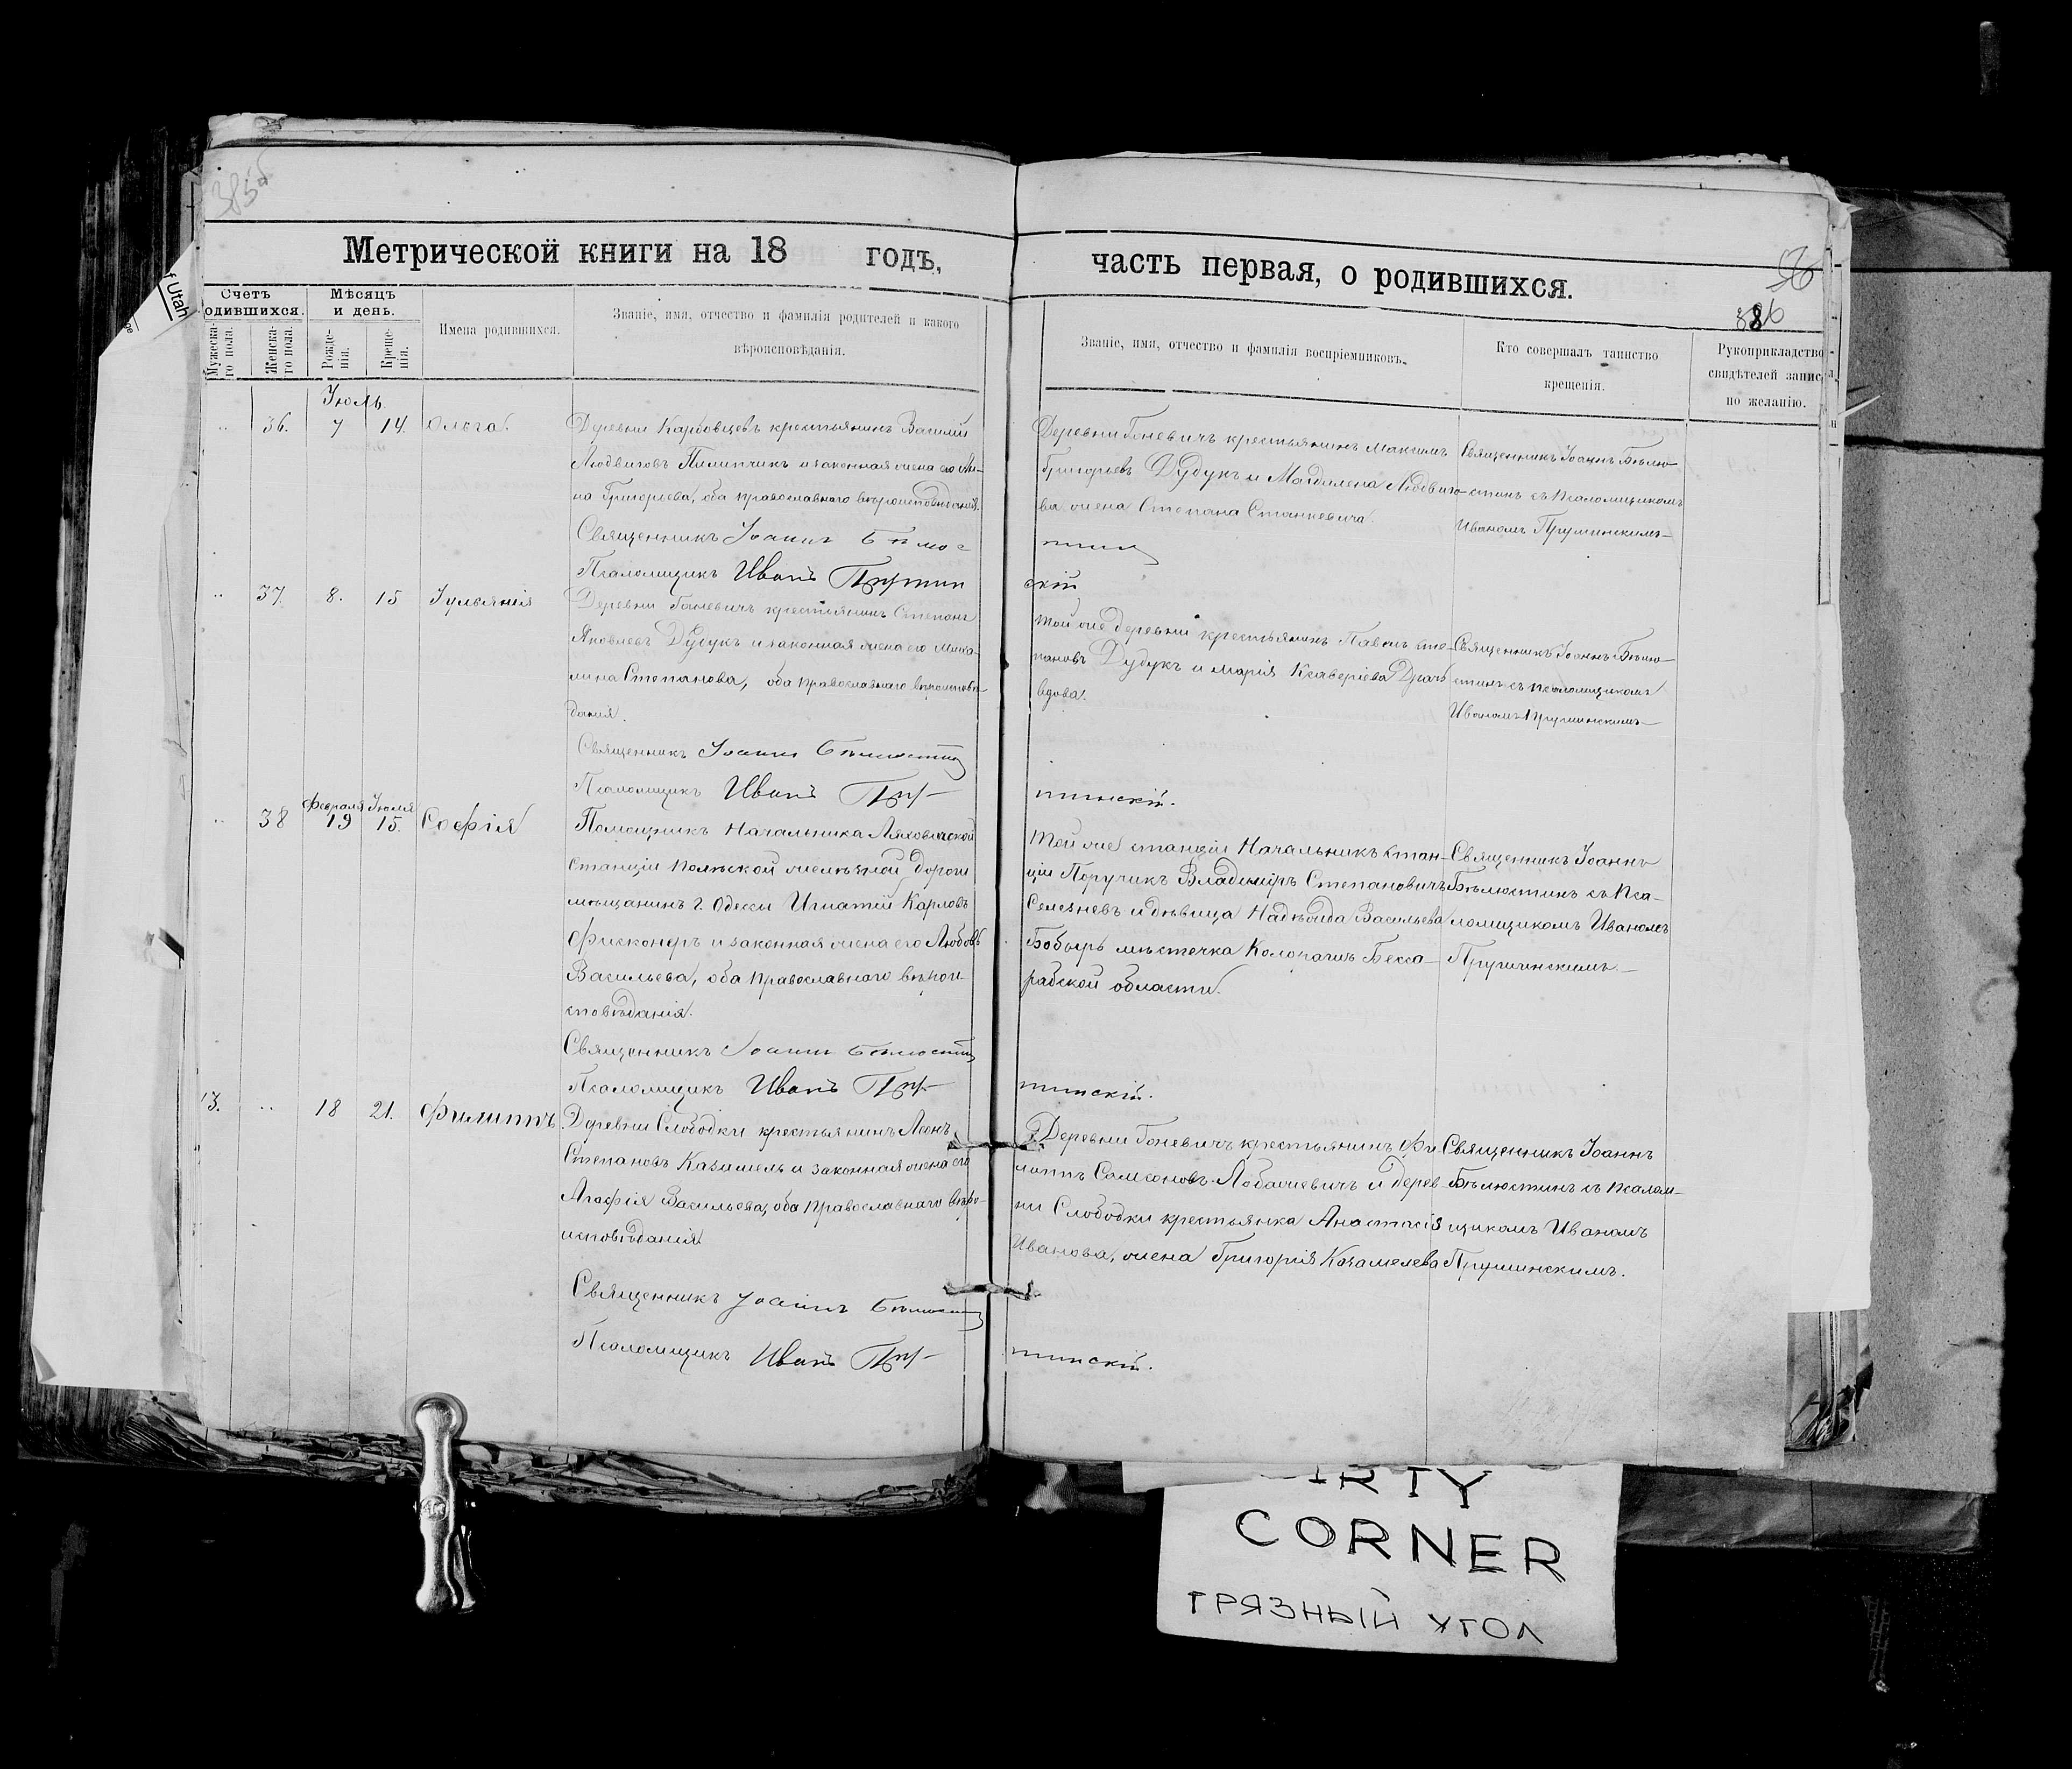 385
Метрической книги на 18 годѣ,
часть первая, о родившихся.
56
386
Счетъ
одившихся.
Мѣсяцъ
и день.
Мужеска-
го пола.
Женска-
го пола.
Рожде-
нія.
Креще-
нія.
Имена родившихся.
Званіе, имя, отчество и фамилія родителей и какого
вѣроисповѣданія.
Званіе, имя, отчество и фамилія воспріемниковъ.
Кто совершалъ таинство
крещенія.
Рукоприкладство
свидѣтелей запис
по желанію.
Іюль
36. 7 14. Ольга.
Деревни Карбовцевъ крестьянинъ Василій
Людвиговъ Пилипчикъ и законная жена его Ан-
на Григорьева, оба православнаго вѣроисповѣданія.
Священникъ Іоаннъ Бѣлюс
Псаломщикъ Иванъ Прушин
Деревни Гоневичъ крестьянинъ Максимъ
Григорьевъ Дудукъ и Магдалена Людвиго-
ва жена Степана Станкевича.
тин
скій
Священникъ Іоаннъ Бѣлю-
стинъ съ псаломщикомъ
Иваномъ Прушинскимъ
37. 8. 15 Іульянія
Деревни Гоневичъ крестьянинъ Степанъ
Яковлевъ Дудукъ и законная жена его Миха-
лина Степанова, оба православнаго вѣроисповѣ-
данія.
Священникъ Іоаннъ Бѣлюстин
Псаломщикъ Иванъ Пру-
Той же деревни крестьянинъ Павелъ Сте-
пановъ Дудукъ и Марія Ксаверіева Драч
вдова.
шинскій.
Священникъ Іоаннъ Бѣлю-
стинъ съ псаломщикомъ
Иваномъ Прушинскимъ
Февраля Іюля
38 19 15. Софія
Помощникъ Начальника Ляховичской
станціи Полѣской желѣзной дороги
мѣщанинъ г. Одессы Игнатій Карловъ
Фисконеръ и законная жена его Любовь
Васильева, оба православнаго вѣрои-
сповѣданія.
Священникъ Іоаннъ Бѣлюстин
Псаломщикъ Иванъ Пру-
Той же станціи Начальникъ стан-
ціи Поручикъ Владиміръ Степановичъ
Селезневъ и дѣвица Надѣжда Васильева
Бобырь мѣстечка Колонашъ Бесса-
рабской области.
шинскій.
Священникъ Іоаннъ
Бѣлюстинъ съ пса-
ломщикомъ Иваномъ
Прушинскимъ.
13. 18 21. Филиппъ
Деревни Слободки крестьянинъ Леонъ
Степановъ Казимель и законная жена его
Агафія Васильева, оба православнаго вѣро-
исповѣданія
Священникъ Іоаннъ Бѣлюстин
Псаломщикъ Иванъ Пру-
Деревни Гоневичъ крестьянинъ Фи
липпъ Самсоновъ Лобашевичъ и дерев-
ни Слободки крестьянка Анастасія
Иванова, жена Григорія Казамелева
шинскій.
Священникъ Іоаннъ
Бѣлюстинъ съ псалом-
щикомъ Иваномъ
Прушинскимъ.
CORNER
ГРЯЗНЫЙ УГОЛ